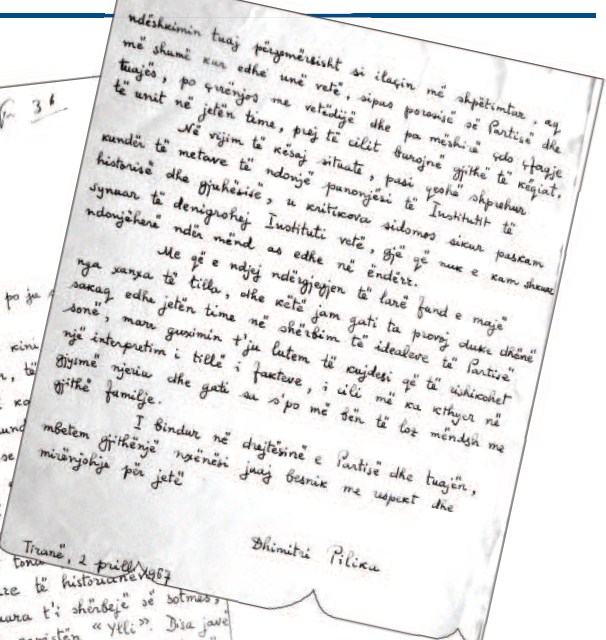 ndëshkimin tuaj përzemërsisht si ilaçin më shpëtimtar, aq
më shumë kur edhe unë vetë, sipas porosisë së Partisë dhe
tuajës, po çrrënjos me vetëdije dhe pa mëshirë çdo çfaqje
të unit në jetën time, prej të cilit burojnë gjithë të këqiat.
Në vijim të kësaj situate, pasi qeshë shprehur
kundër të metave të ndonjë punonjësi të Institutit të
historisë dhe gjuhësisë, u kritikova sidomos sikur paskam
synuar të denigrohej Instituti vetë, gjë që nuk e kam shkuar
ndonjëherë ndër mënd as edhe në ëndërr.
Me që e ndjej ndërgjegjen të larë fund e majë
nga xanxa të tilla, dhe këtë jam gati ta provoj duke dhënë
sakaq edhe jetën time në shërbim të idealeve të Partisë
sonë, marr guximin t'ju lutem të kujdesi që të rishikohet
një interpretim i tillë i fakteve, i cili më ka kthyer në
gjysmë njeriu dhe gati sa s'po më bën të loz mëndsh me
gjithë familje.
I bindur në drejtësinë e Partisë dhe tuajën,
mbetem gjithënjë nxënësi juaj besnik me respekt dhe
mirënjohje për jetë
Dhimitri Pilika
Tiranë, 2 prill 1967
36
po ju
kini
të
se
tona
të historianëve
t'i shërbejë së sotmes,
« Ylli ». Disa javë